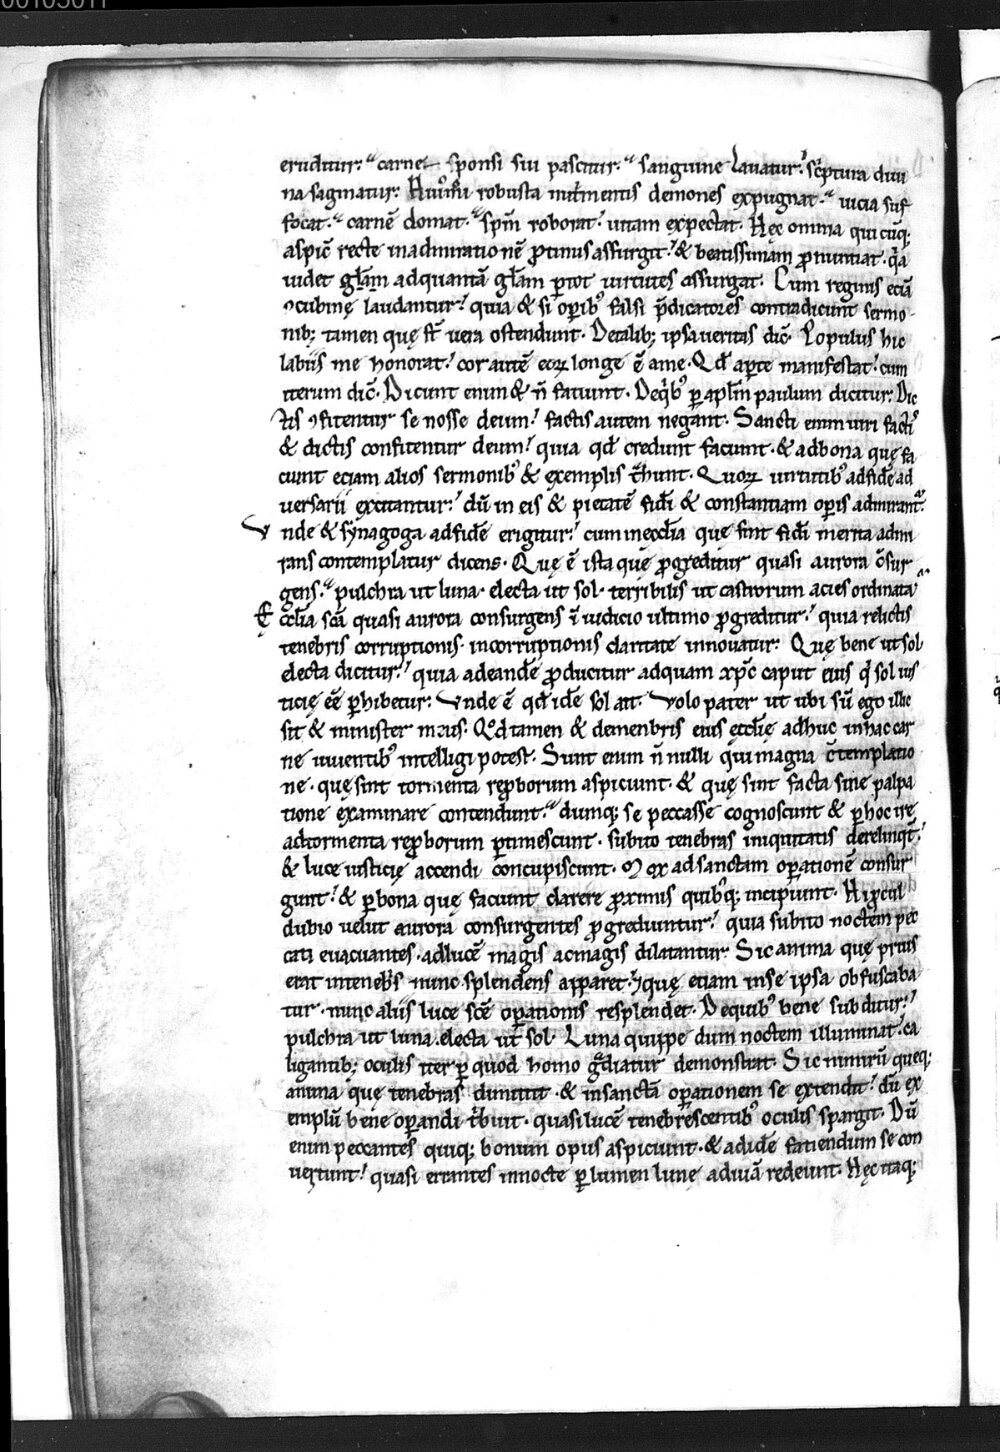 eruditur. carne sponsi sui pascitur. sanguine lauatur. scͥptura diui
na saginatur. robusta mentis demones expugnat. uicia suf
focat. carnē domat. spm̄ roborat. uitam expectat. Hęc omnia qui cūq;
aspic̄ recte inadmirationē protinus assurgit. & beatissimam pronuntiat. qͥa
uidet gl̄am adquantā gl̄am ꝑtot uirtutes assurgat. Cum reginis eciā
ↄcubinę laudantur. quia & si oꝑibꝰ falsi p̄dicatores contradicunt sermo
nib; tamen quę st̄ uera ostendunt. Detalib; ipsaueritas dic̄. Populus hic
labiis me honorat. cor autē eoꝝ longe ē ame. Qd̄ aꝑte manifestat. cum
iterum dic̄. Dicunt enim & n̄ faciunt. Deqͥbꝰ ꝑ apl̄m paulum dicitur. Dic
tis ↄfitentur se nosse deum. factis autem negant. Sancti enim uiri facti
& dictis confitentur deum. quia qd̄ credunt faciunt. & adbona quę fa
ciunt eciam alios sermonibꝰ & exemplis tͣhunt. Quoꝝ uirtutibꝰ adfidē ad
uersarii excitantur. dū in eis & pietatē fidei & constantiam oꝑis admirant᷑.
Vnde & synagoga adfidē erigitur. cum inecclia que sint fidei merita admi
rans contemplatur dicens. Quę ē ista quę progreditur quasi aurora ↄ̄sur
gens. pulchra ut luna. electa ut sol. terribilis ut castrorum acies ordinata
Ęcclia scā quasi aurora consurgens ī iudicio ultimo progreditur. quia relictis
tenebris corruptionis. incorruptionis claritate innouatur. Quę bene ut sol
electa dicitur. quia adeandē producitur adquam xp̄c caput eius qͥ sol ius
ticię eē ꝑhibetur. Vnde ē qd̄ idē sol ait. Volo pater ut ubi sū ego illic
sit & minister meus. Qd̄ tamen & demenbris eius ęcclię adhuc inhac car
ne uiuentibꝰ intelligi potest. Sunt enim n̄ nulli qui magna cōtemplatio
ne. quę sint tormenta reproborum aspiciunt. & quę sint facta sine palpa
tione examinare contendunt. dumq; se peccasse cognoscunt & ꝑhoc ire
adtormenta reproborum ꝑtimescunt. subito tenebras iniquitatis derelinqͥt.
& luce iusticię accendi concupiscunt. Mox adsanctam oꝑationē consur
gunt. & ꝑbona quę faciunt clarere proximis incipiunt. procul
dubio uelut aurora consurgentes progrediuntur. quia subito noctem pec
cati euacuantes. adlucē magis acmagis dilatantur. Sic anima quę prius
erat intenebris nunc splendens apparet. quę eciam inse ipsa obfuscaba
tur. nunc aliis luce scē oꝑationis resplendet. Dequibꝰ bene subditur.
pulchra ut luna. electa ut sol. Luna quippe dum noctem illuminat. ca
ligantib; oculis iter ꝑ quod homo gͣdiatur demonstrat. Sic nimirū queq;
anima quę tenebras dimittit. & insanctā oꝑationem se extendit. dū ex
emplū bene oꝑandi tͥbuit. quasi lucē tenebrescentibꝰ oculis spargit. Dū
enim peccantes quiq; bonum opus aspiciunt. & adidē faciendum se con
uertunt. quasi errantes innocte ꝑ lumen lunę aduiā redeunt. Hęc itaq;